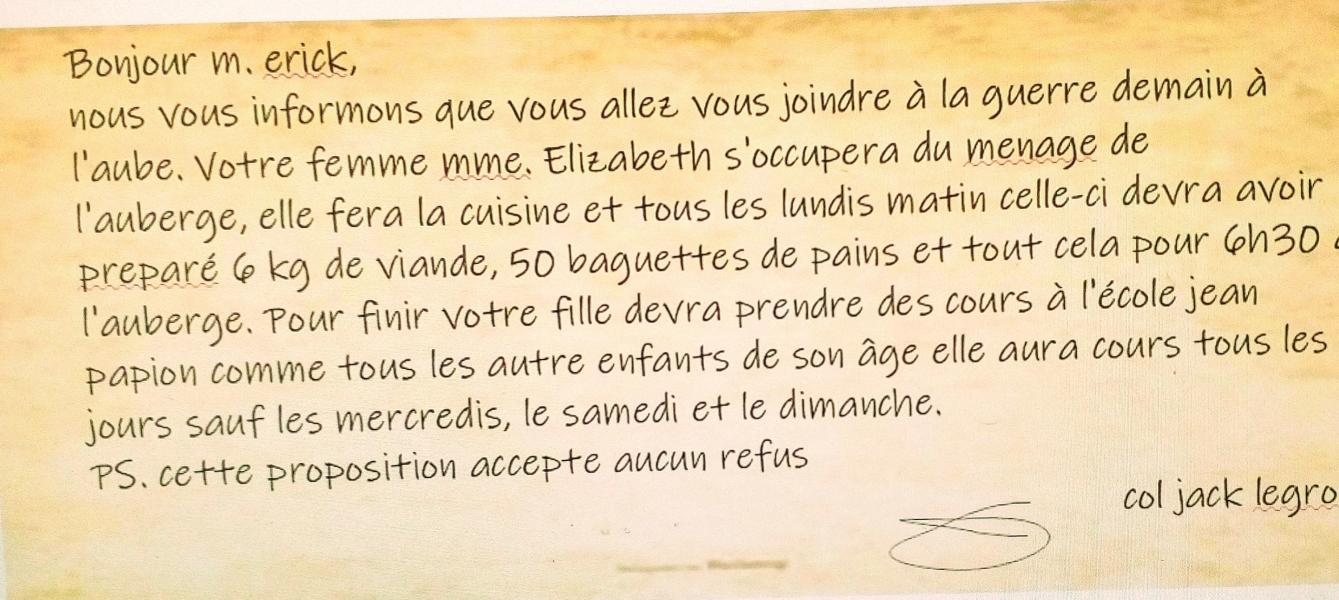 Bonjour m. erick,
nous vous informons que vous allez vous joindre à la guerre demain à
l'aube. Votre femme mme. Elizabeth s'occupera du menage de
l'auberge, elle fera la cuisine et tous les lundis matin celle-ci devra avoir
preparé 6 kg de viande, 50 baguettes de pains et tout cela pour 6h30
l'auberge. Pour finir votre fille devra prendre des cours à l'école jean
papion comme tous les autre enfants de son âge elle aura cours tous les
jours sauf les mercredis, le samedi et le dimanche.
PS. cette proposition accepte aucun refus
col jack legro